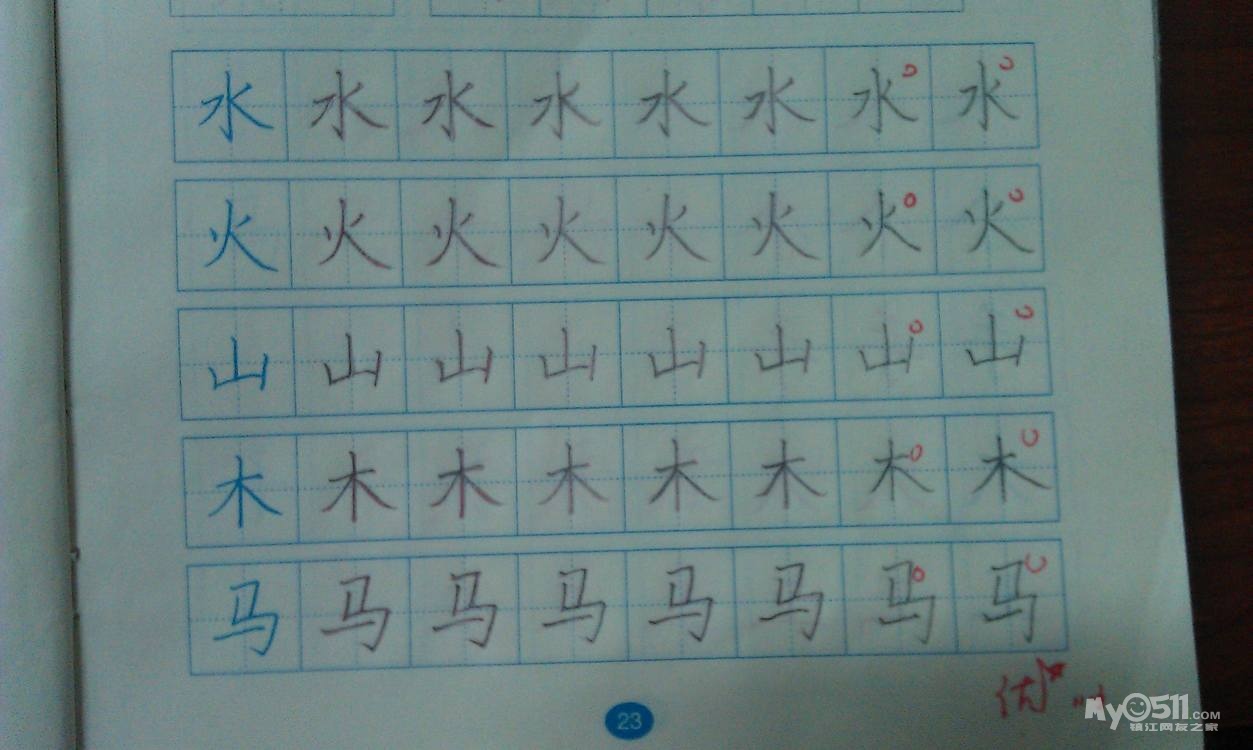 水水水水水水水水
火火火火火火火火
山山山山山山山山
木木木木木木木木
马马马马马马马马
优
23
My0511.COM
镇江网友之家